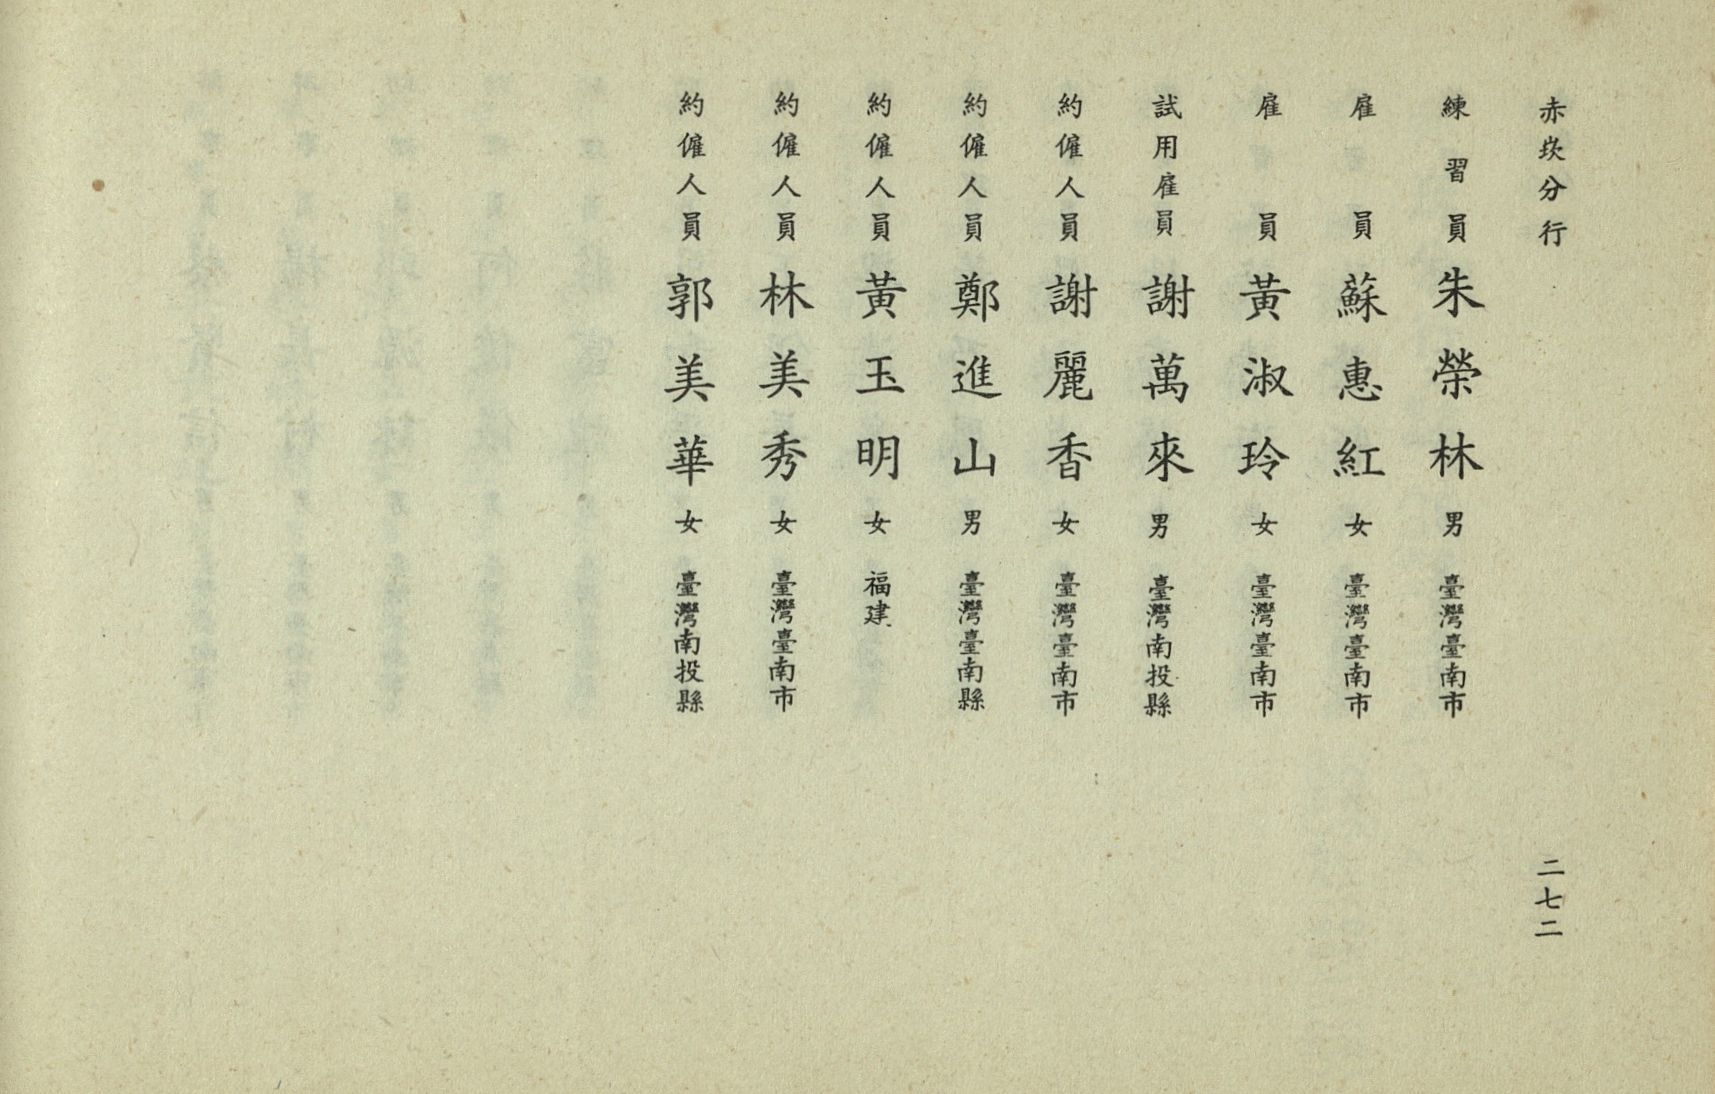 赤崁分行
練習員 朱榮林 男 臺灣臺南市
雇員 蘇惠紅 女 臺灣臺南市
雇員 黃淑玲 女 臺灣臺南市
試用雇員 謝萬來 男 臺灣南投縣
約僱人員 謝麗香 女 臺灣臺南市
約僱人員 鄭進山 男 臺灣臺南縣
約僱人員 黃玉明 女 福建
約僱人員 林美秀 女 臺灣臺南市
約僱人員 郭美華 女 臺灣南投縣
二七二